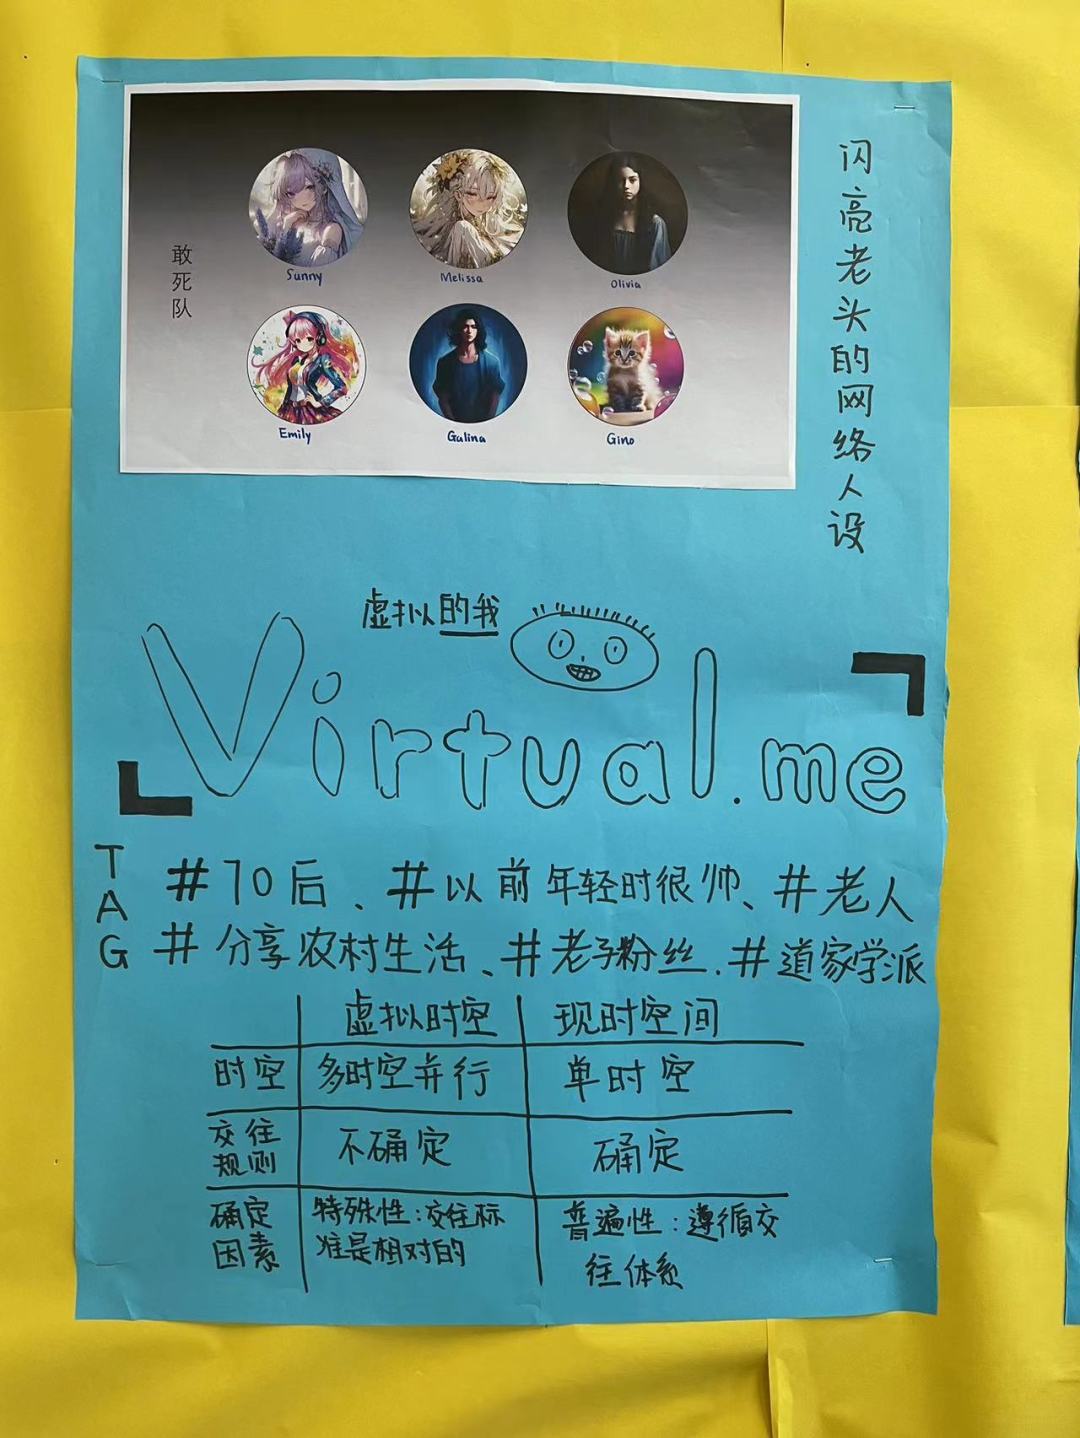 敢死队
Sunny
Melissa
Olivia
Emily
Galina
Gino
闪亮老头的网络人设
虚拟的我
Virtual.me
TAG
#70后、#以前年轻时很帅、#老人
#分享农村生活、#老子粉丝.#道家学派
虚拟时空 现时空间
时空 多时空并行 单时空
交往
规则
不确定 确定
确定
因素
特殊性:交往标
准是相对的
普遍性:遵循交
往体系